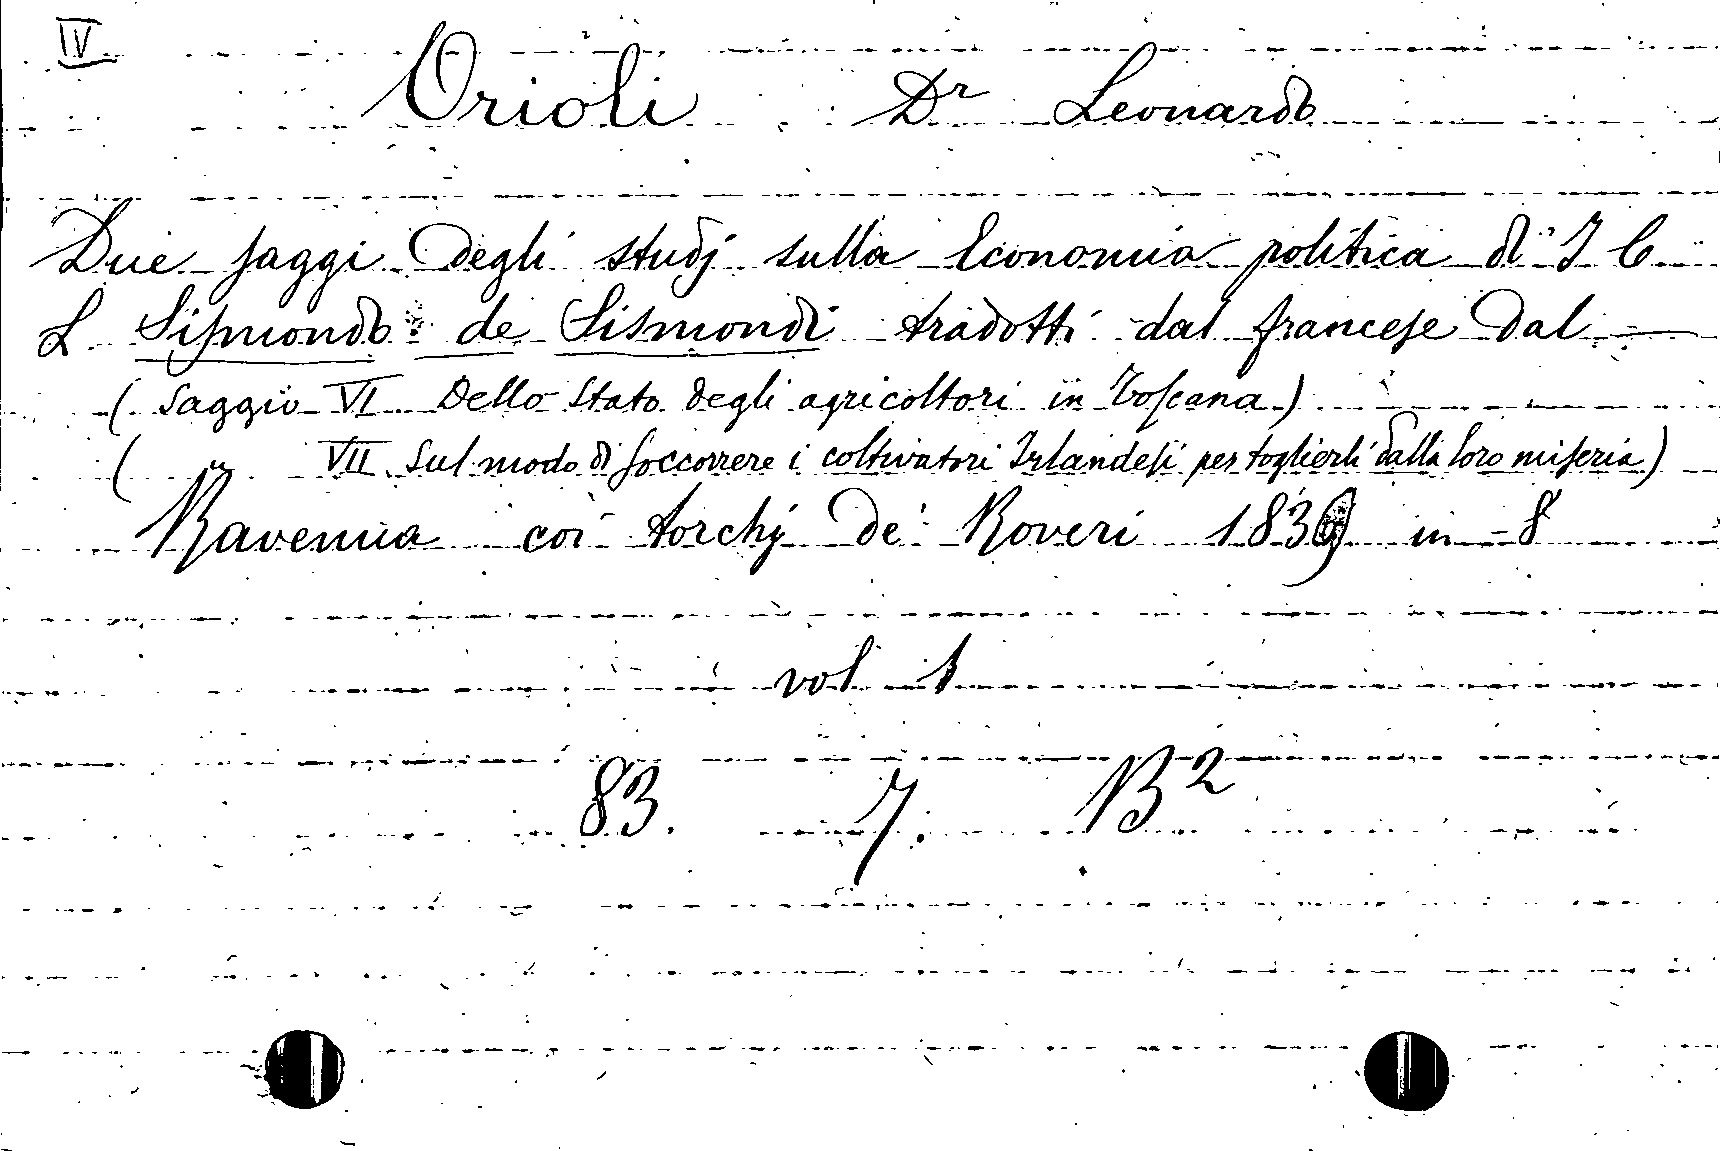 IV
Orioli Dr Leonardo
Due saggi degli studj sulla Economia politica di J C
L Sismondo de Sismondi tradotti dal francese dal —
( Saggio VI Dello Stato degli agricoltori in Toscana )
( VII Sul modo di soccorrere i coltivatori Irlandesi per toglierli dalla loro miseria )
Ravenna coi torchj de' Roveri 1839 in 8
vol 1
83. 7. B2